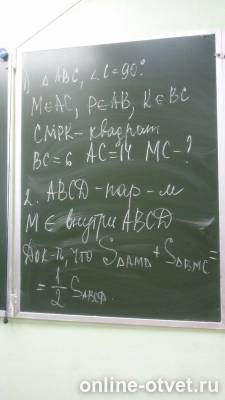 1) △ABC, ∠C=90°
M∈AC, P∈AB, K∈BC
CMPK - квадрат
BC=6 AC=14 MC-?
2. ABCD - пар-м
M ∈ внутри ABCD
Док-ть, что S△AMD + S△BMC =
= 1/2 SABCD.
online-otvet.ru